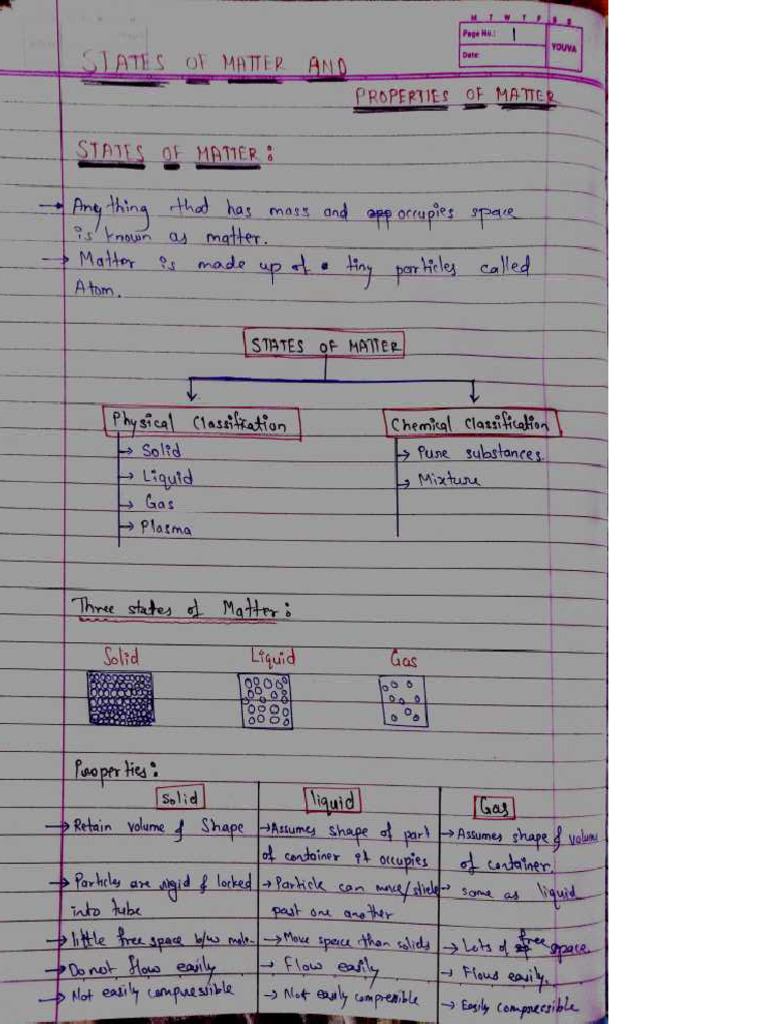 M T W T F S S
Page No.: 1
Date:
YOUVA
STATES OF MATTER AND
PROPERTIES OF MATTER
STATES OF MATTER:
→ Anything that has mass and occupies space
is known as matter.
→ Matter is made up of tiny particles called
Atom.
STATES OF MATTER
Physical Classification
Chemical Classification
→ Solid
→ Pure substances.
→ Liquid
→ Mixture
→ Gas
→ Plasma
Three states of Matter:
Solid Liquid Gas
Properties:
solid liquid Gas
→ Retain volume & Shape
→ Assumes shape of part
of container it occupies
→ Assumes shape & volume
of container.
→ Particles are rigid & locked
into tube
→ Particle can move/slide
past one another
→ same as liquid
→ little free space b/w mole.
→ More space than solids
→ Lots of free space
→ Do not flow easily
→ Flow easily
→ Flows easily.
→ Not easily compressible
→ Not easily compressible
→ Easily compressible